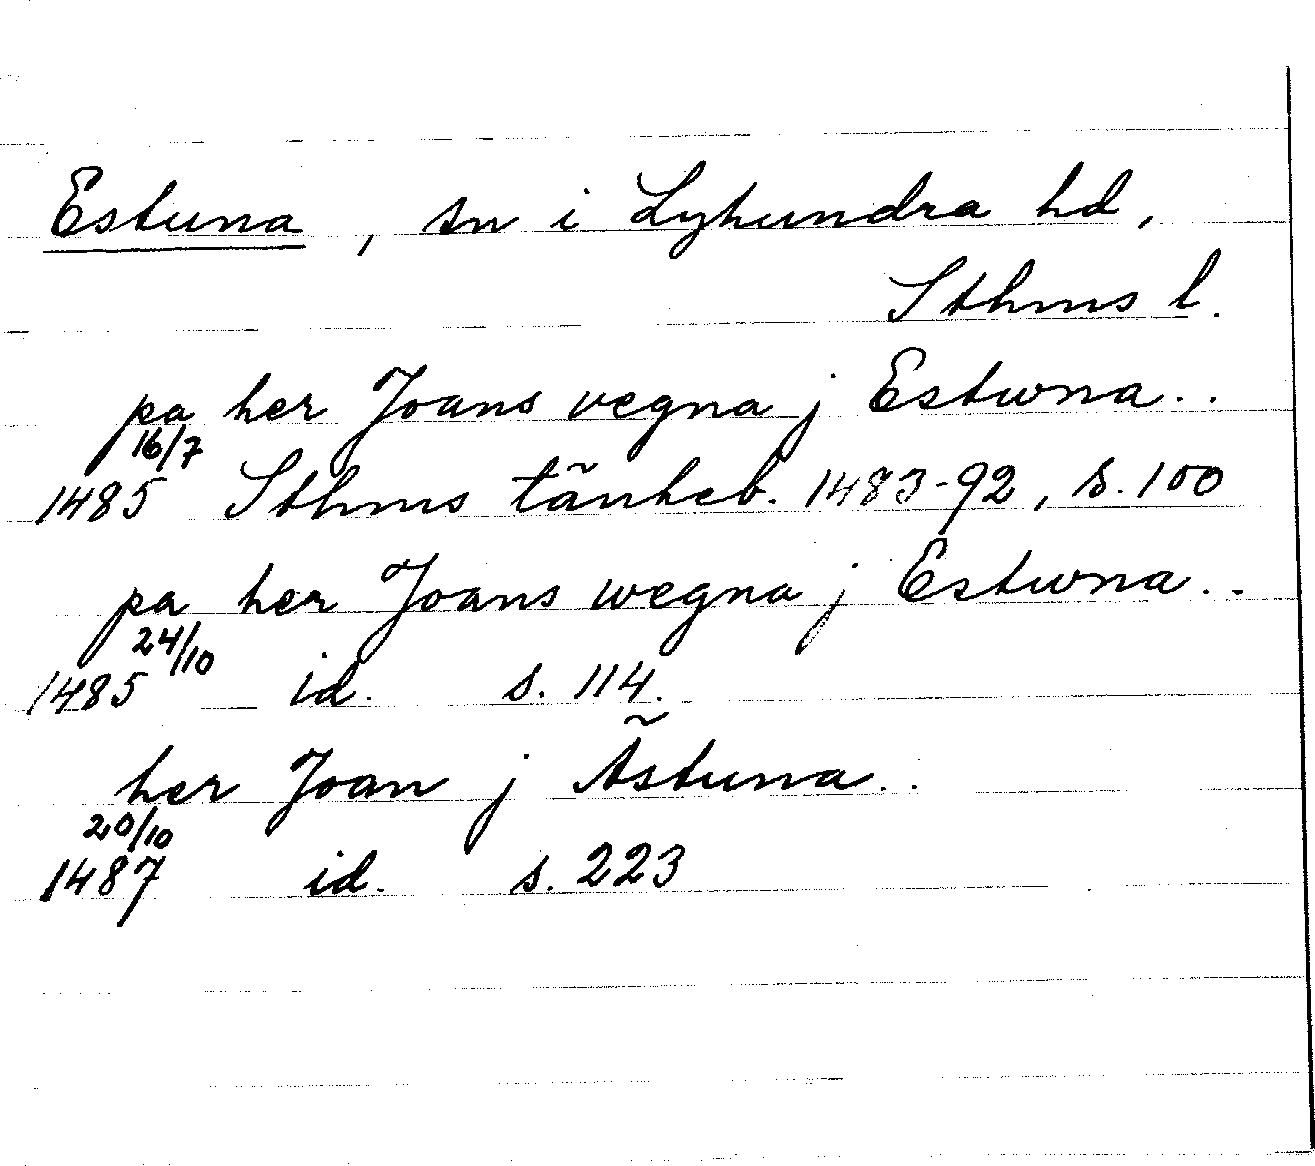 Estuna, sn i Lyhundra hd,
Sthms l.
pa her Joans vegna j Estwna..
16/7
1485 Sthms tänkeb. 1483-92, s. 100
pa her Joans wegna j Estwna..
24/10
1485 id. s. 114.
her Joan j Ästuna..
20/10
1487 id. s. 223